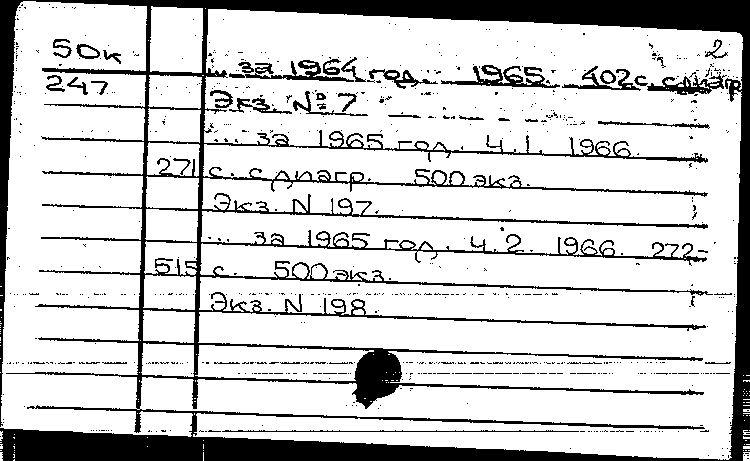 2
50к ... за 1964 год. 1965. 402с. с диагр.
247 Экз. № 7
... за 1965 год. Ч.1. 1966.
271 с. с диагр. 500 экз.
Экз. N 197.
... за 1965 год. Ч.2. 1966. 272-
515 с. 500 экз.
Экз. N 198.